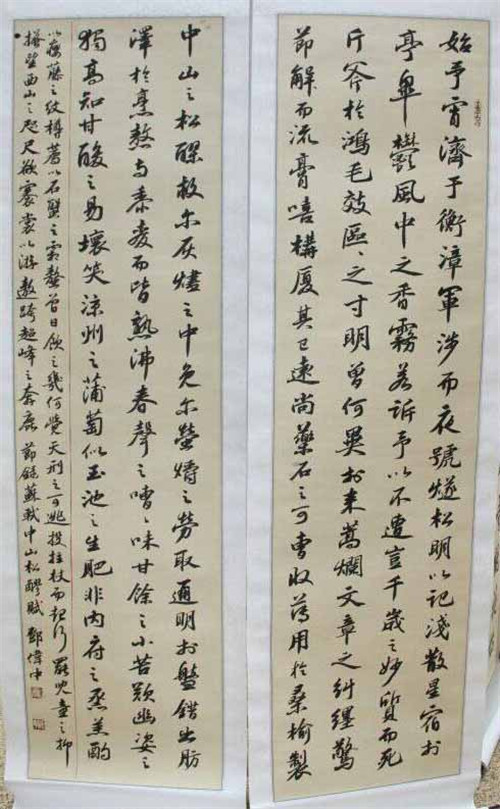 始予宵濟于衡漳軍涉而夜號燧松明以記淺散星宿於
亭皋鬱風中之香霧若訴予以不遭豈千歲之妙質而死
斤斧於鴻毛效區々之寸明曾何異於束蒿爛文章之糾纏驚
節解而流膏嘻構厦其已遠尚藥石之可曹收薄用於桑榆製
中山之松醪救尔灰燼之中免尔螢爝之勞取通明於盤錯出肪
澤於烹熬与黍麦而皆熟沸舂聲之嘈々味甘餘之小苦歎幽姿之
獨高知甘酸之易壞笑涼州之蒲萄似玉池之生肥非内府之烝羔酌
以癭藤之紋樽薦以石蟹之霜螯曾日飲之幾何覺天刑之可逃投拄杖而起行罷兒童之抑
搔望西山之咫尺欲褰裳以游遨跨超峰之奔鹿 節錄蘇軾中山松醪賦 鄧偉中